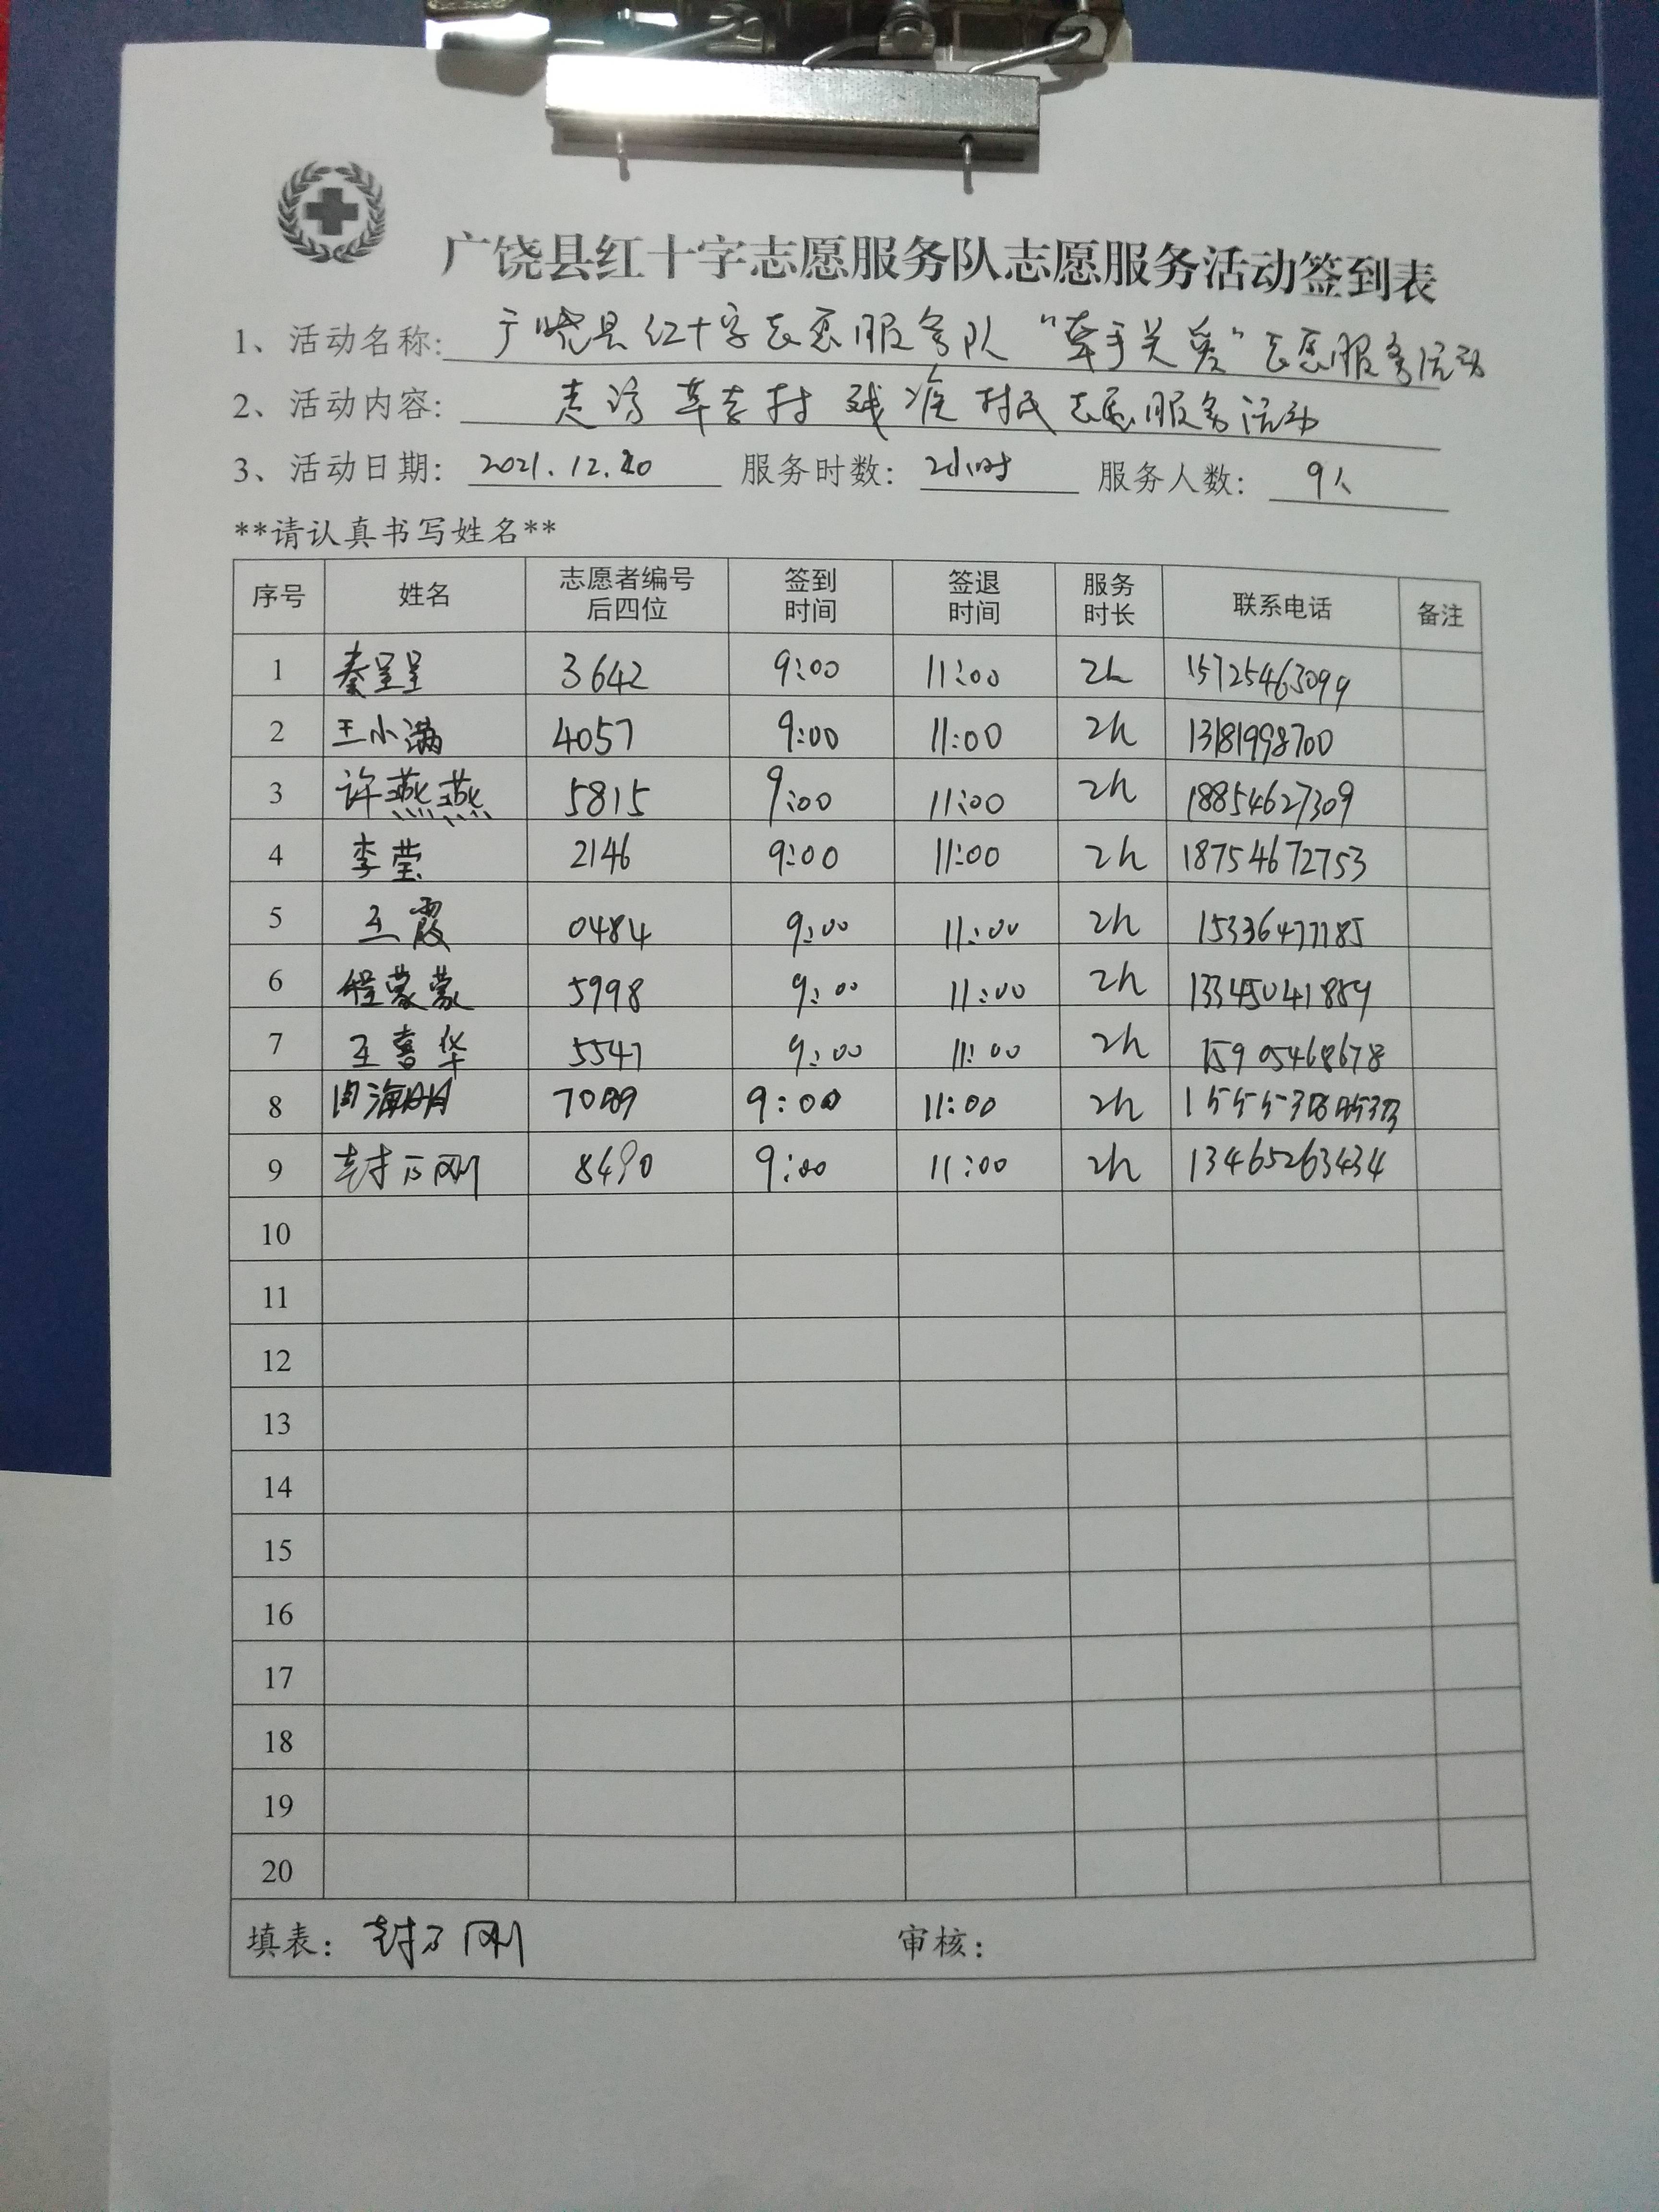 广饶县红十字志愿服务队志愿服务活动签到表
1、活动名称: 广饶县红十字志愿服务队“牵手关爱”志愿服务活动
2、活动内容: 走访 村残 村民志愿服务活动
3、活动日期: 2021.12. 服务时数: 2小时 服务人数: 9人
**请认真书写姓名**
序号 姓名 志愿者编号后四位 签到时间 签退时间 服务时长 联系电话 备注
1 秦呈呈 3642 9:00 11:00 2h 15725463099
2 王小满 4057 9:00 11:00 2h 13181998700
3 许燕燕 5815 9:00 11:00 2h 18854627309
4 李莹 2146 9:00 11:00 2h 18754672753
5 王霞 0484 9:00 11:00 2h 15336477185
6 程蒙蒙 5998 9:00 11:00 2h
7 王喜华 5547 9:00 11:00 2h 15905468678
8 海明 9:00 11:00 2h
9 封 刚 8490 9:00 11:00 2h 13465263434
10
11
12
13
14
15
16
17
18
19
20
填表: 封 刚 审核: